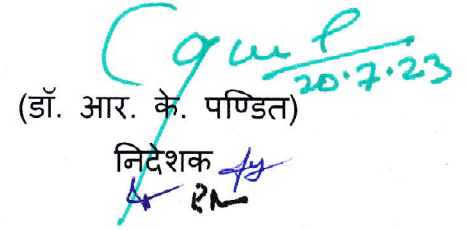 20.7.23
(डॉ. आर. के. पण्डित)
निदेशक